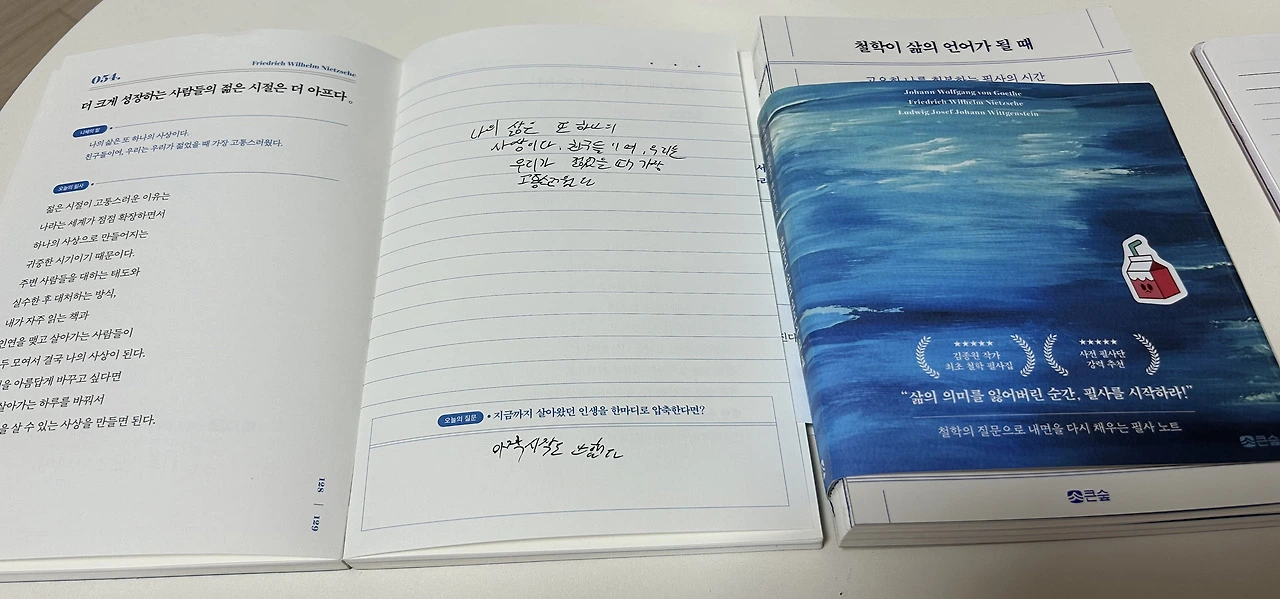 054.
Friedrich Wilhelm Nietzsche
더 크게 성장하는 사람들의 젊은 시절은 더 아프다.
니체의 말
나의 삶은 또 하나의 사상이다.
친구들이여, 우리는 우리가 젊었을 때 가장 고통스러웠다.
오늘의 필사
젊은 시절이 고통스러운 이유는
나라는 세계가 점점 확장하면서
하나의 사상으로 만들어지는
귀중한 시기이기 때문이다.
주변 사람들을 대하는 태도와
실수한 후 대처하는 방식,
내가 자주 읽는 책과
인연을 맺고 살아가는 사람들이
모여서 결국 나의 사상이 된다.
아름답게 바꾸고 싶다면
살아가는 하루를 바꿔서
살 수 있는 사상을 만들면 된다.
128 | 129
나의 삶은 또 하나의
사상이다. 친구들이여, 우리는
우리가 젊었을 때 가장
고통스러웠다
오늘의 질문
지금까지 살아왔던 인생을 한마디로 압축한다면?
아직 시작도 안했다
철학이 삶의 언어가 될 때
Johann Wolfgang von Goethe
Friedrich Wilhelm Nietzsche
Ludwig Josef Johann Wittgenstein
★★★★★
김종원 작가
최초 철학 필사집
★★★★★
사전 필사단
강력 추천
“삶의 의미를 잃어버린 순간, 필사를 시작하라!”
철학의 질문으로 내면을 다시 채우는 필사 노트
큰숲
큰숲